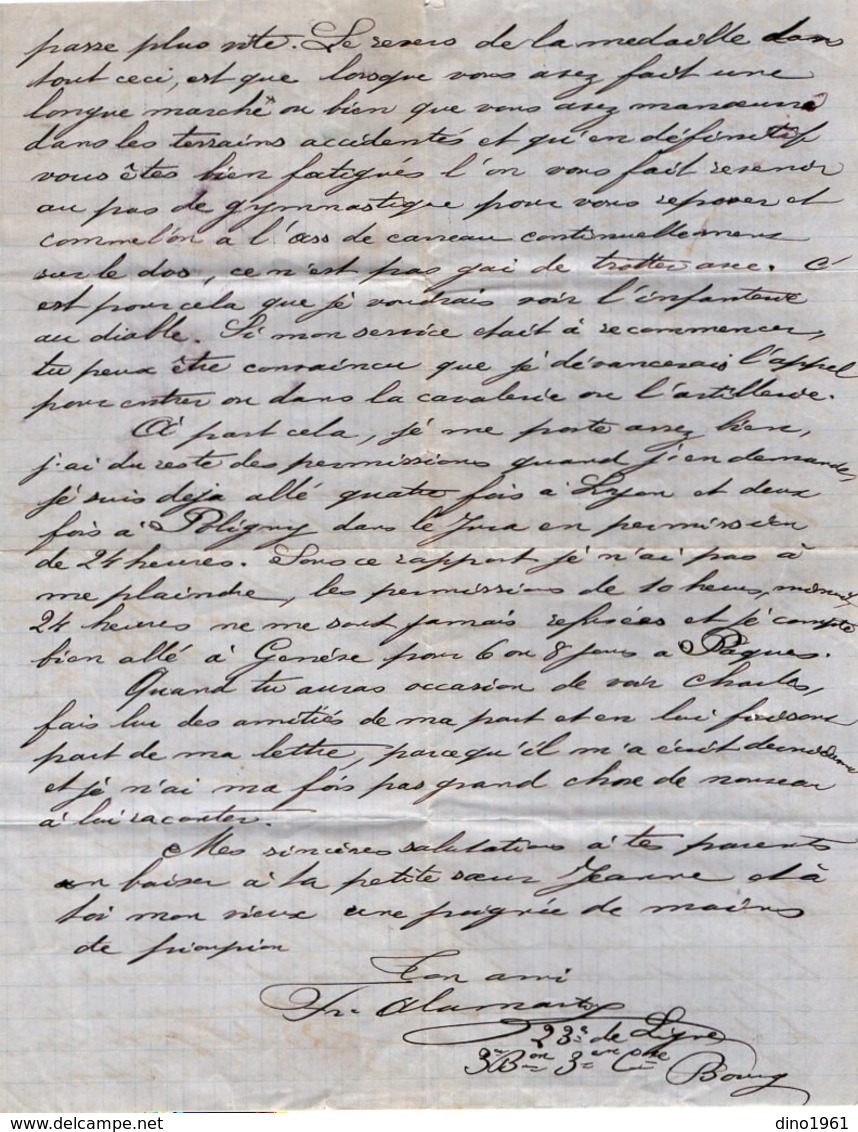 passe plus vite. Le revers de la medaille dans
tout ceci, est que lorsque vous avez fait une
longue marche ou bien que vous avez manœuvré
dans les terrains accidentés et qu'en définitif
vous êtes bien fatigués l'on vous fait revenir
au pas de gymnastique pour vous reposer et
comme l'on a l'ass de carreau continuellement
sur le dos, ce n'est pas gai de trotter avec. C'
est pour cela que je voudrais voir l'infanterie
au diable. Si mon service etait à recommencer,
tu peux être convaincu que je dévancerais l'appel
pour entrer ou dans la cavalerie ou l'artillerie.
A part cela, je me porte assez bien,
j'ai du reste des permissions quand j'en demande,
je suis deja allé quatre fois à Lyon et deux
fois à Poligny dans le Jura en permission
de 24 heures. Sous ce rapport je n'ai pas à
me plaindre, les permissions de 10 heures, minuit
24 heures ne me sont jamais refusées et je compte
bien allé à Genève pour 6 ou 8 jours a Pâques.
Quand tu auras occasion de voir Charles,
fais lui des amitiés de ma part et en lui faisant
part de ma lettre, parcequ'il m'a écrit
et je n'ai ma fois pas grand chose de nouveau
à lui raconter.
Mes sincères salutations à tes parents
un baiser à ta petite sœur Jeanne et à
toi mon vieux une poignée de mains
de pioupiou
Ton ami
Fr. Alamartin
23e de Ligne
3e Bon 3e Cie
Bourg
dino1961